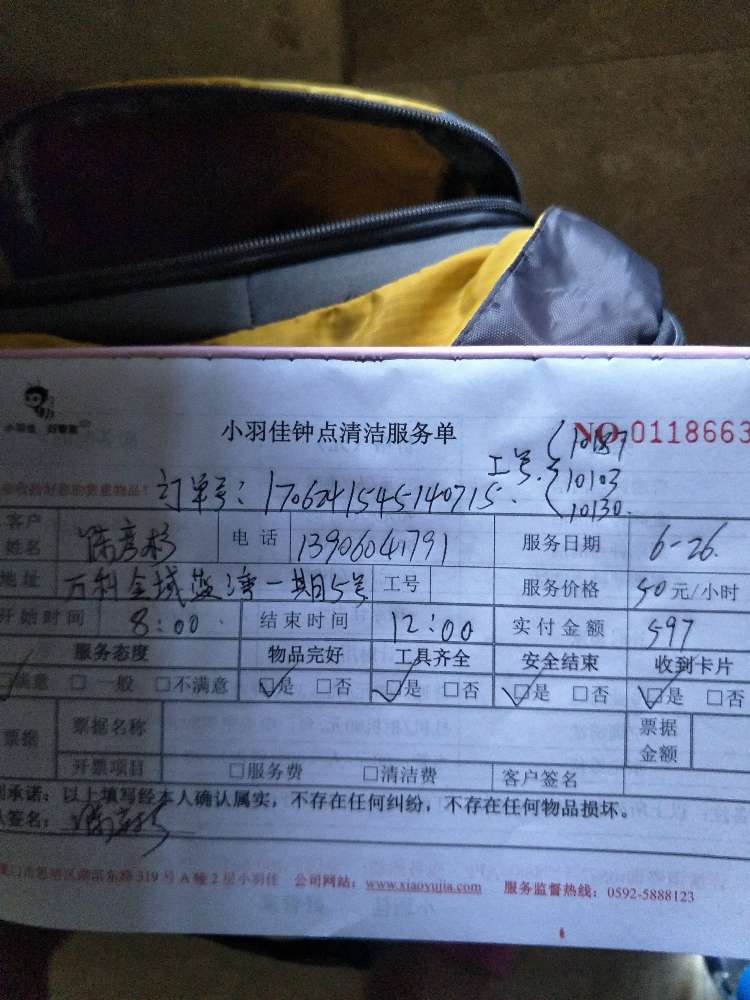 小羽佳 好管家
小羽佳钟点清洁服务单 NO.0118663
工号: 10187
10103
10130.
收拾好您的贵重物品!
订单号: 1706241545140715.
客户姓名 陈彦彬 电话 13906041791 服务日期 6-26.
地址 万科金域蓝湾一期5号 工号 服务价格 50元/小时
开始时间 8:00 结束时间 12:00 实付金额 597
服务态度 物品完好 工具齐全 安全结束 收到卡片
☑满意 □一般 □不满意 ☑是 □否 ☑是 □否 ☑是 □否 ☑是 □否
票据 票据名称 票据金额
开票项目 □服务费 □清洁费 客户签名
承诺: 以上填写经本人确认属实，不存在任何纠纷，不存在任何物品损坏。
签名:
厦门市思明区湖滨东路319号A幢2层小羽佳 公司网站: www.xiaoyujia.com 服务监督热线: 0592-5888123